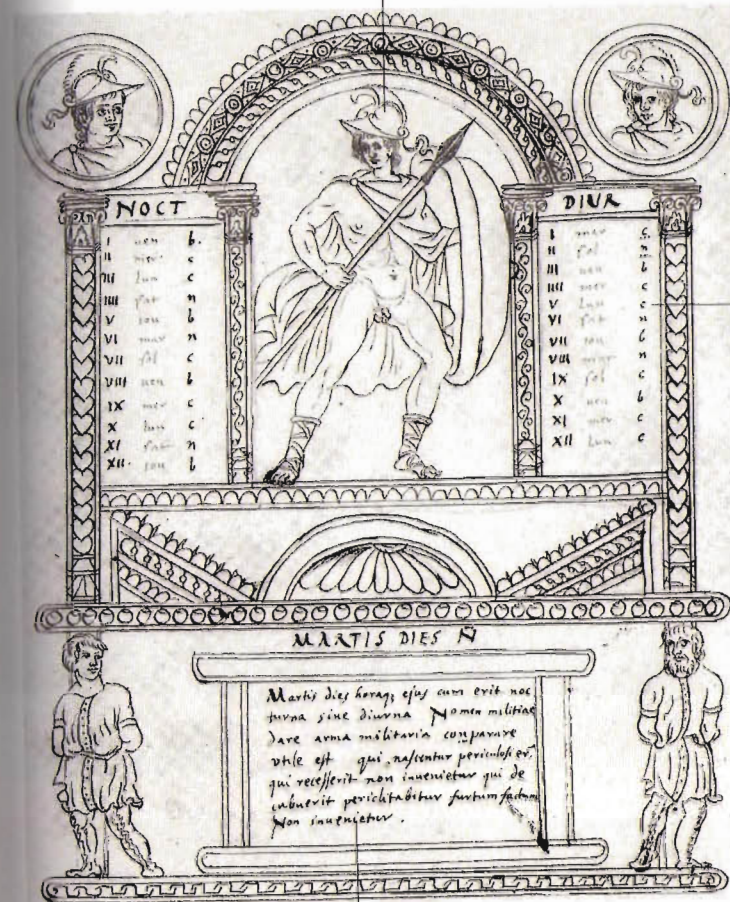 NOCT
I uen b.
II mer c
III lun c
IIII sat n
V iou b
VI mar n
VII sol c
VIII uen b
IX mer c
X lun c
XI sat n
XII. iou b
DIUR
I mar n
II sol c
III uen b
IIII mer c
V lun c
VI sat n
VII iou b
VIII mar n
IX sol c
X uen b
XI mer c
XII lun c
MARTIS DIES Ñ
Martis dies horaqz ejus cum erit noc
turna siue diurna Nomen militiae
dare arma militaria conparare
vtile est qui nascentur periculosi er.
qui recesserit non inuenietur qui de
cubuerit periclitabitur furtum factum
Non inuenietur.